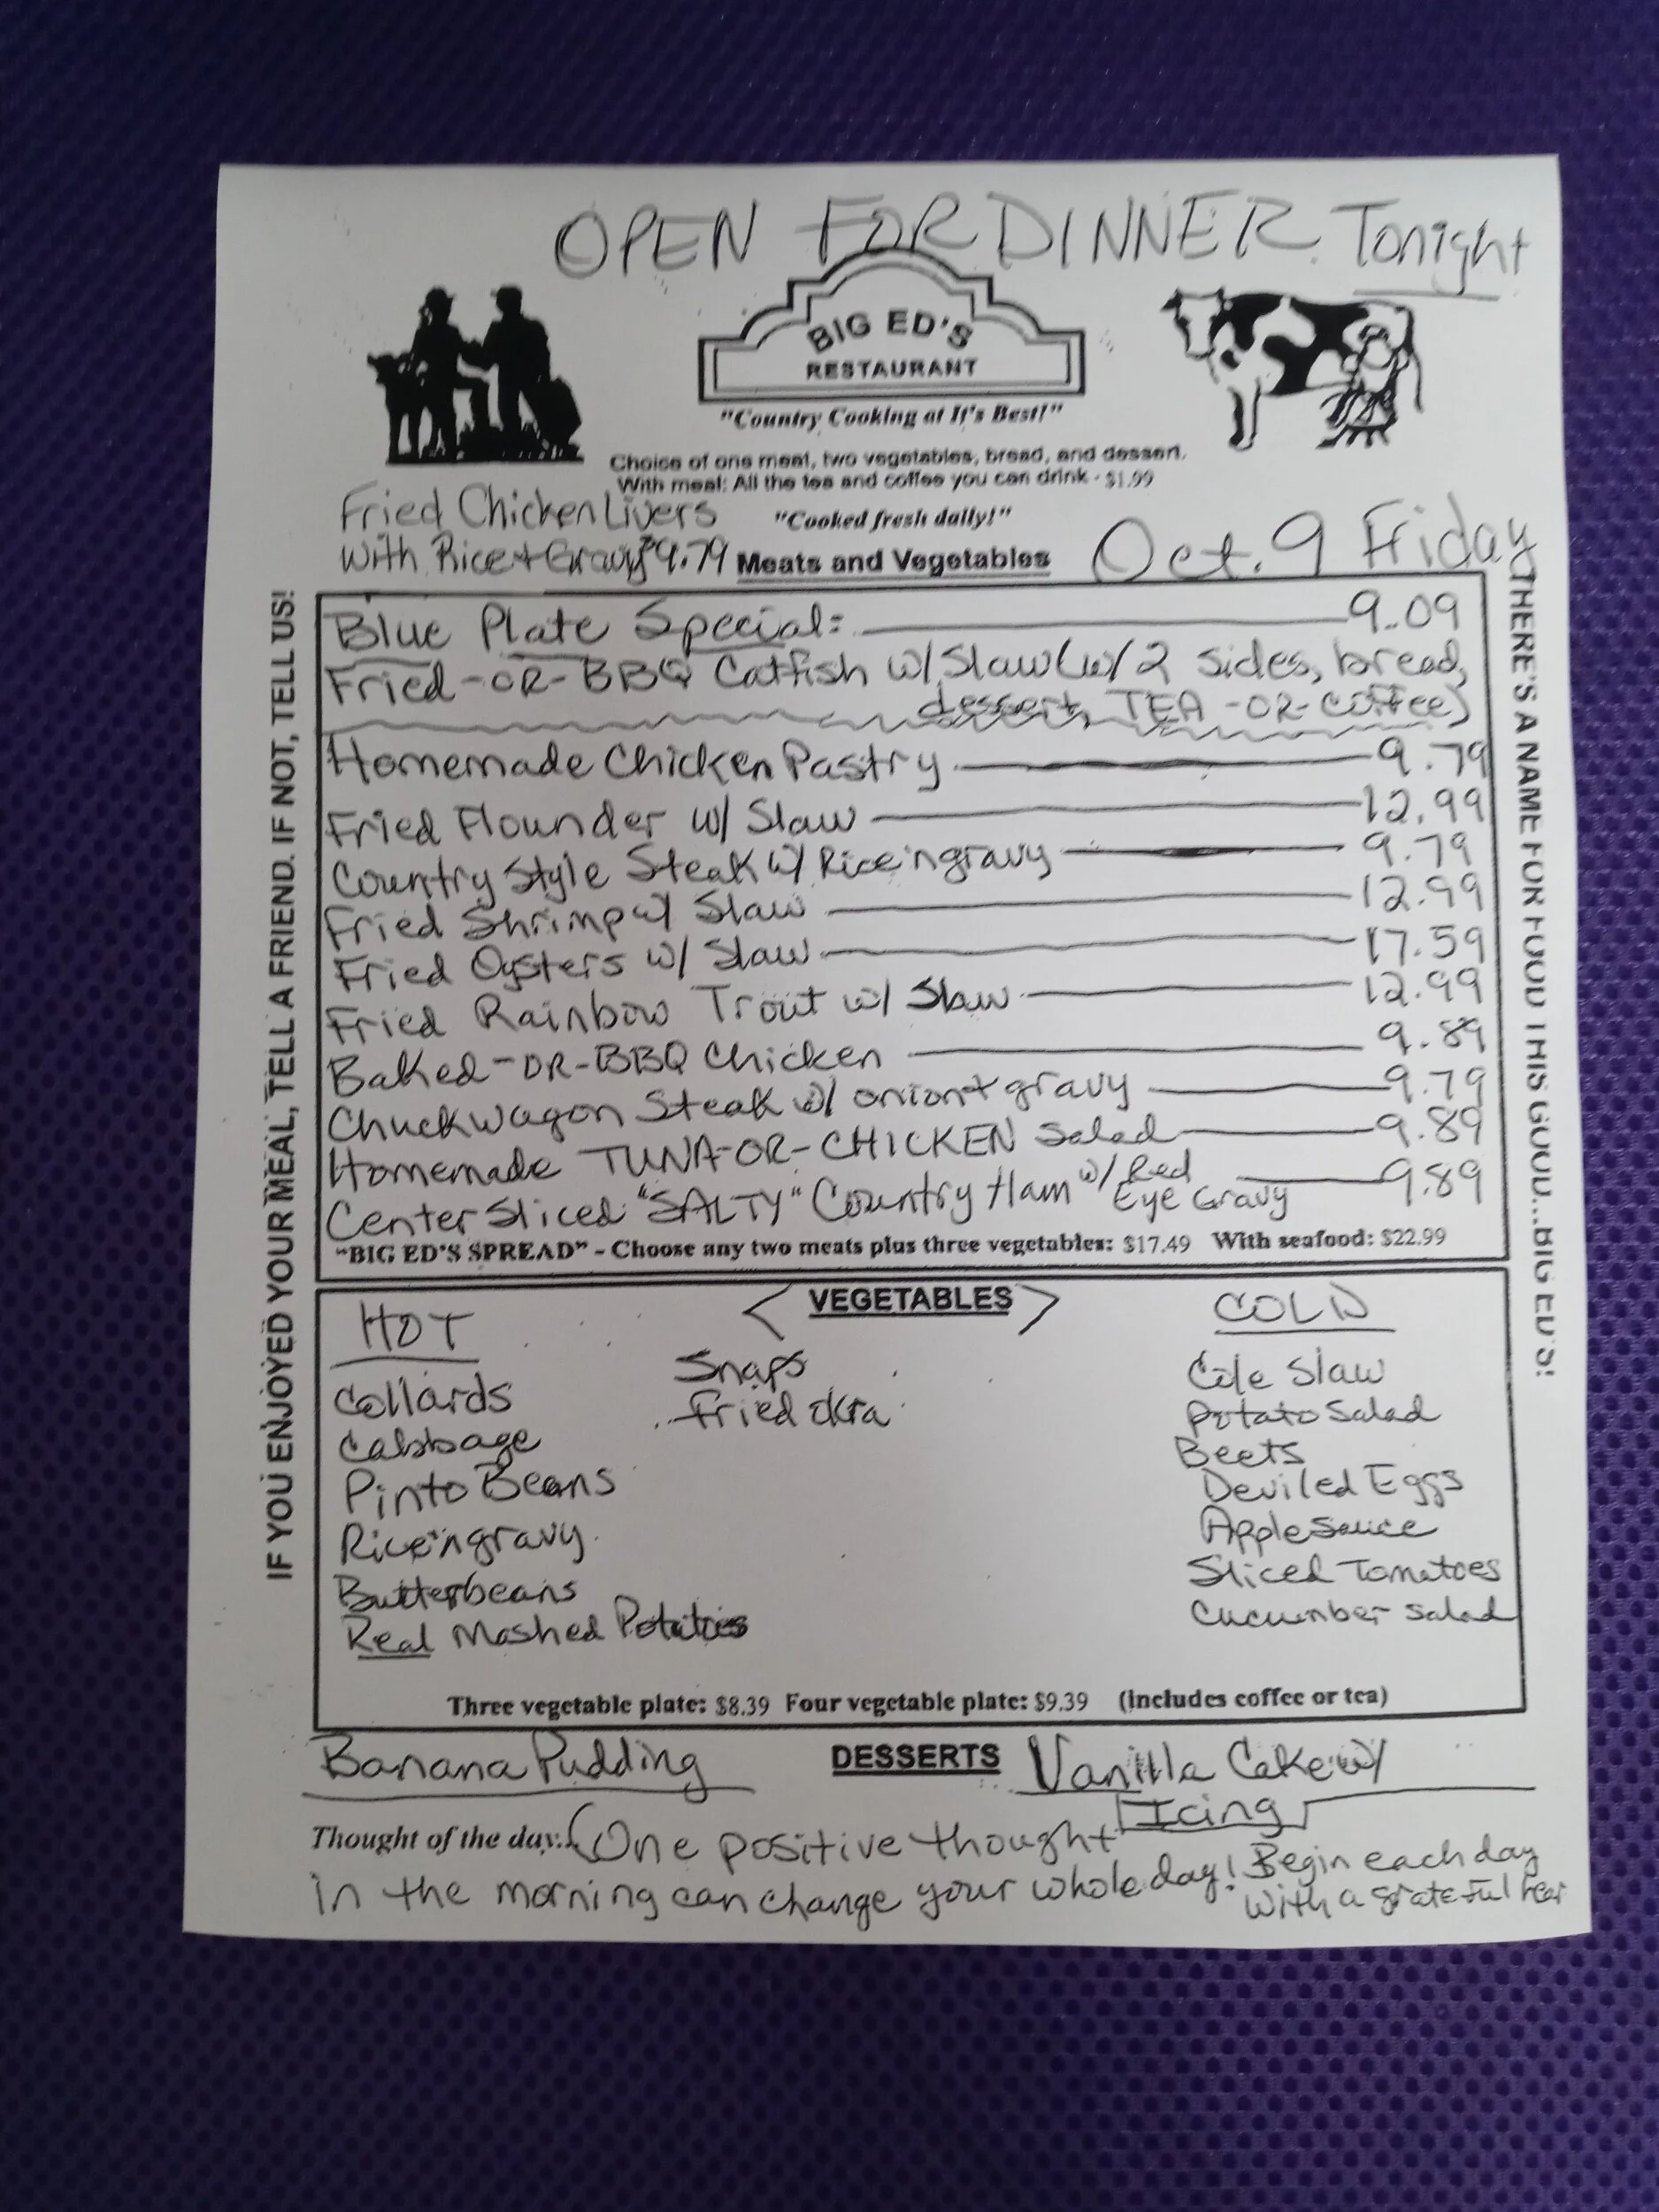 OPEN FOR DINNER Tonight
BIG ED'S
RESTAURANT
"Country Cooking at It's Best!"
Choice of one meat, two vegetables, bread, and dessert.
With meal: All the tea and coffee you can drink - $1.99
"Cooked fresh daily!"
Fried Chicken Livers
With Rice + Gravy $9.79
Meats and Vegetables
Oct. 9 Friday
IF YOU ENJOYED YOUR MEAL, TELL A FRIEND. IF NOT, TELL US!
THERE'S A NAME FOR FOOD THIS GOOD...BIG ED'S!
Blue Plate Special: 9.09
Fried -OR- BBQ Catfish w/ Slaw (w/ 2 sides, bread,
dessert, TEA -OR- coffee)
Homemade Chicken Pastry 9.79
Fried Flounder w/ Slaw 12.99
Country Style Steak w/ Rice'n gravy 9.79
Fried Shrimp w/ Slaw 12.99
Fried Oysters w/ Slaw 17.59
Fried Rainbow Trout w/ Slaw 12.99
Baked -OR- BBQ Chicken 9.89
Chuckwagon Steak w/ onion + gravy 9.79
Homemade TUNA-OR-CHICKEN Salad 9.89
Center Sliced "SALTY" Country Ham w/ Red Eye Gravy 9.89
"BIG ED'S SPREAD" - Choose any two meats plus three vegetables: $17.49 With seafood: $22.99
VEGETABLES
HOT
Collards
Cabbage
Pinto Beans
Rice'n gravy
Butterbeans
Real Mashed Potatoes
Snaps
Fried Okra
COLD
Cole Slaw
Potato Salad
Beets
Deviled Eggs
Apple Sauce
Sliced Tomatoes
Cucumber Salad
Three vegetable plate: $8.39 Four vegetable plate: $9.39 (includes coffee or tea)
DESSERTS
Banana Pudding
Vanilla Cake w/
Icing
Thought of the day... One positive thought
in the morning can change your whole day! Begin each day
with a grateful hear